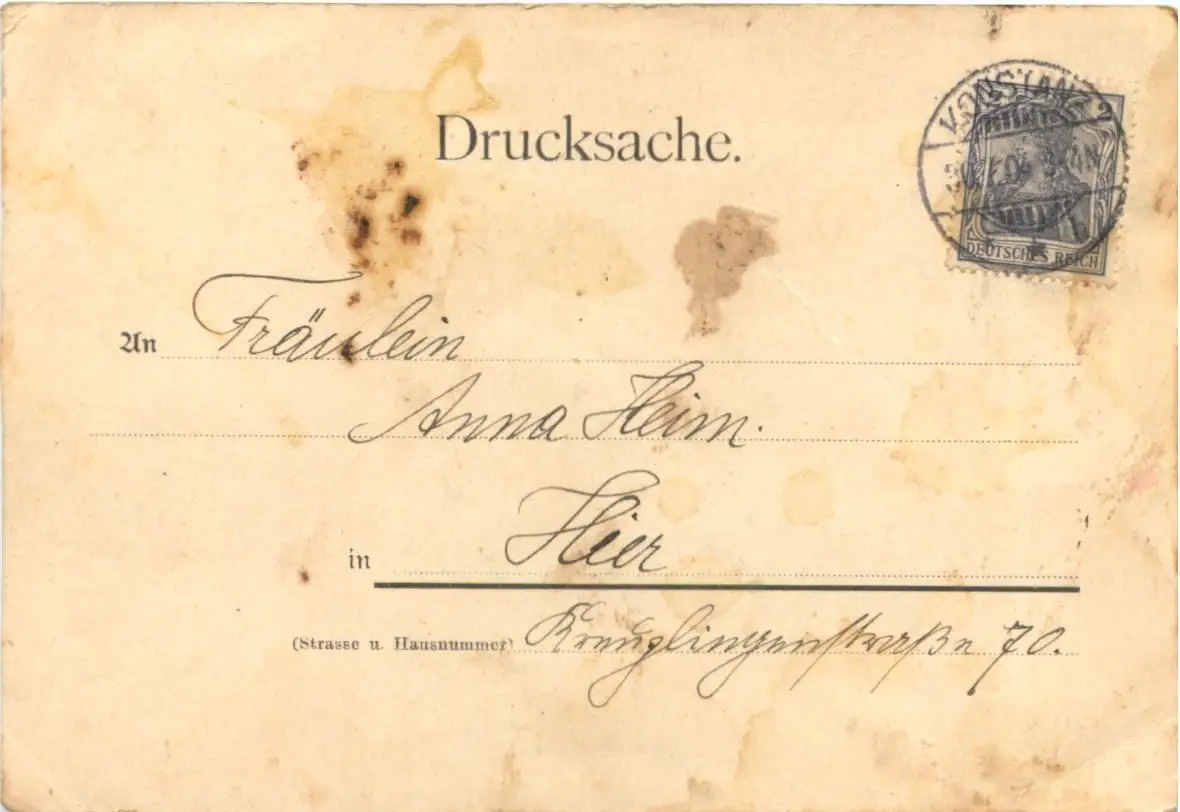 Drucksache.
KONSTANZ 2
DEUTSCHES REICH
An Fräulein
Anna Heim.
in Hier
(Strasse u. Hausnummer) Kreuzlingerstraße 70.